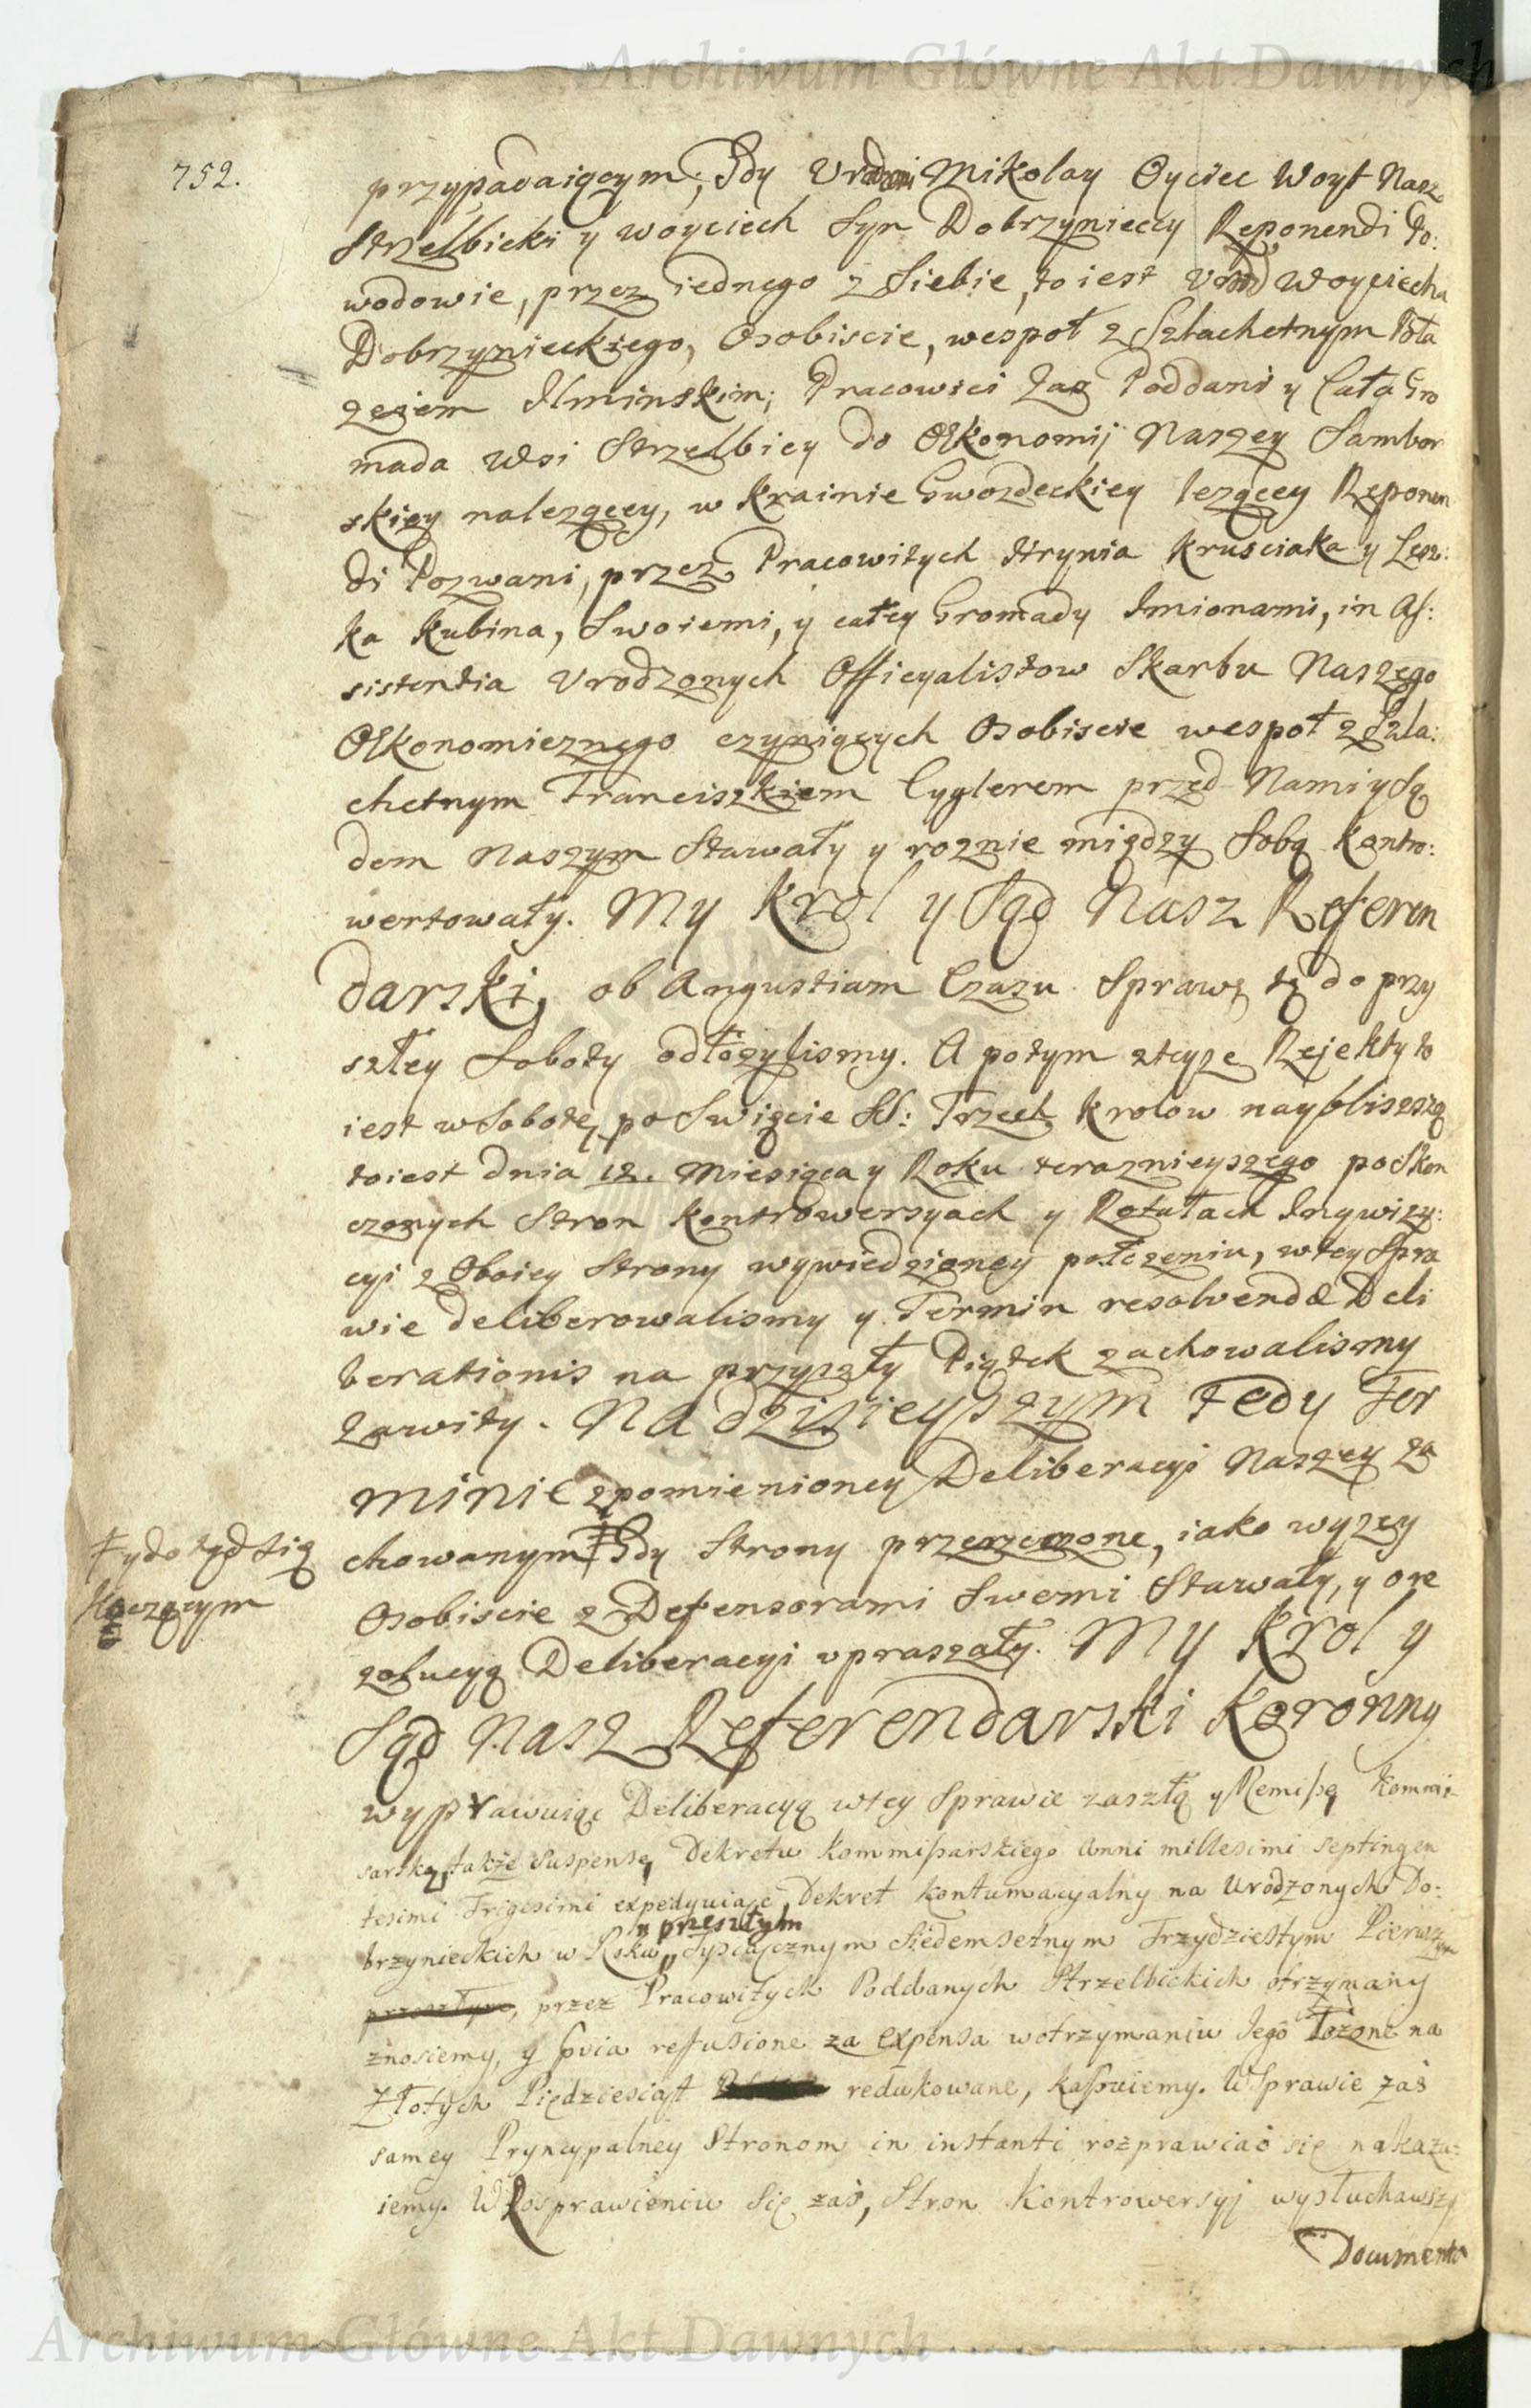 Archiwum Główne Akt Dawnych
752.
przypadaiącym, Gdy Urodzeni Mikolay Oyciec Woyt Nasz
Strzelbicki y Woyciech Syn Dobrzynieccy Reponendi Po:
wodowie, przez iednego z Siebie, to iest Urod Woyciecha
Dobrzynieckiego, Osobiscie, wespoł z Szlachetnym Bła
zeiem Ilminskim; Pracowici zas Poddani y Cała Gro
mada wsi Strzelbicy do OEkonomij Naszey Sambor
skiey nalezącey, w Krainie Gwozdeckiey lezącey Reponen
di Pozwani, przez Pracowitych Hrynia Krusciaka y Lesz:
ka Kubina, Swoiemi, y całey Gromady Imionami, in As:
sistentia Urodzonych Officyalistow Skarbu Naszego
OEkonomicznego czyniących Osobiscie wespoł z Szla:
chetnym Franciszkiem Cyglerem przed Nami y Są
dem Naszym Stawały y roznie między Sobą Kontro:
wertowały. My Krol y Sąd Nasz Referen
darski, ob Angustiam Czasu Sprawę tę do przy
szłey Soboty odłozylismy. A potym z teyze Rejekty to
iest w Sobotę po Swięcie SS: Trzech Krolow nayblisszą
to iest dnia 12. Miesiąca y Roku teraznieyszego po Skon
czonych Stron Kontrowersyach y Rotułach Inqwizy:
cyi z Oboiey Strony wywiedzioney połozeniu, w tey Spra
wie deliberowalismy y Termin resolvendæ Deli
berationis na przyszły Piątek zachowalismy
zawity. Na dzisieyszym tedy Ter
minie zpomienioney Deliberacyi Naszey za
chowanym ǂ Gdy Strony przerzeczone, iako wyzey
ǂ y dotąd się
toczącym
Osobiscie z Defensorami Swemi Stawały, y o re
zolucyą Deliberacyi upraszały. My Krol y
Sąd Nasz Referendarski Koronny
wyprawuiąc Deliberacyą w tey Sprawie zaszłą y Remissę Kommis
sarską, także Suspensę Dekretu Kommissarskiego Anni millesimi septingen
tesimi Trigesimi expedyuiąc, Dekret Kontumacyalny na Urodzonych Do:
y przeszłym
brzynieckich w Roku Tysiącznym Siedemsetnym Trzydziestym Pierwszym
przeszłym, przez Pracowitych Poddanych Strzelbickich otrzymany
znosiemy, y refusione za Expensa w otrzymaniu Jego Łożone na
Złotych Pięcdziesiąt redukowane, kassuiemy. W Sprawie zaś
samey Pryncypalney Stronom in instanti rozprawiać się nakazu:
iemy. W Rosprawieniu Się zaś, Stron Kontrowersyj wysłuchawszy
Documenta
Archiwum Główne Akt Dawnych